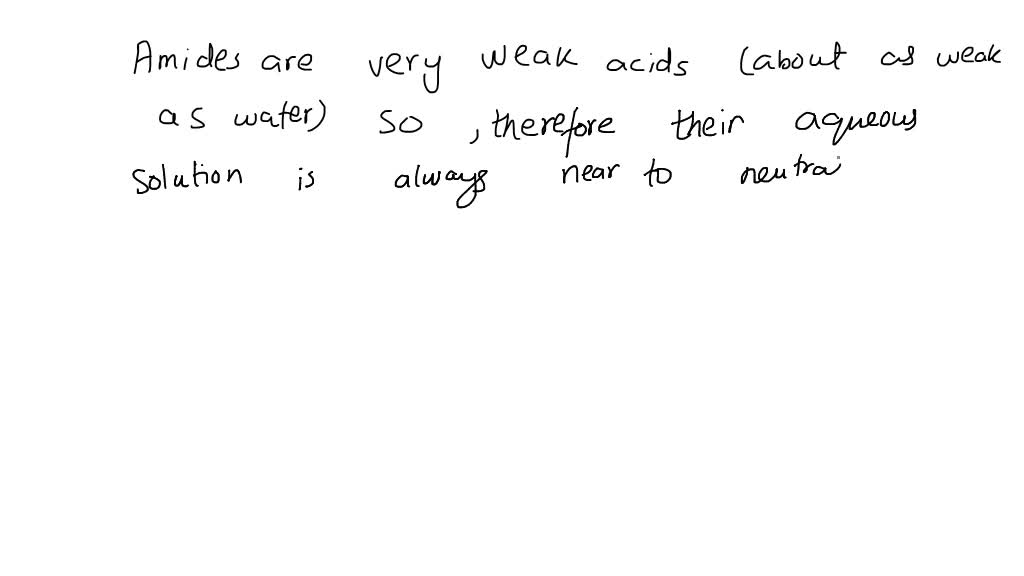 Amides are very weak acids (about as weak
as water) so , therefore their aqueous
solution is always near to neutra